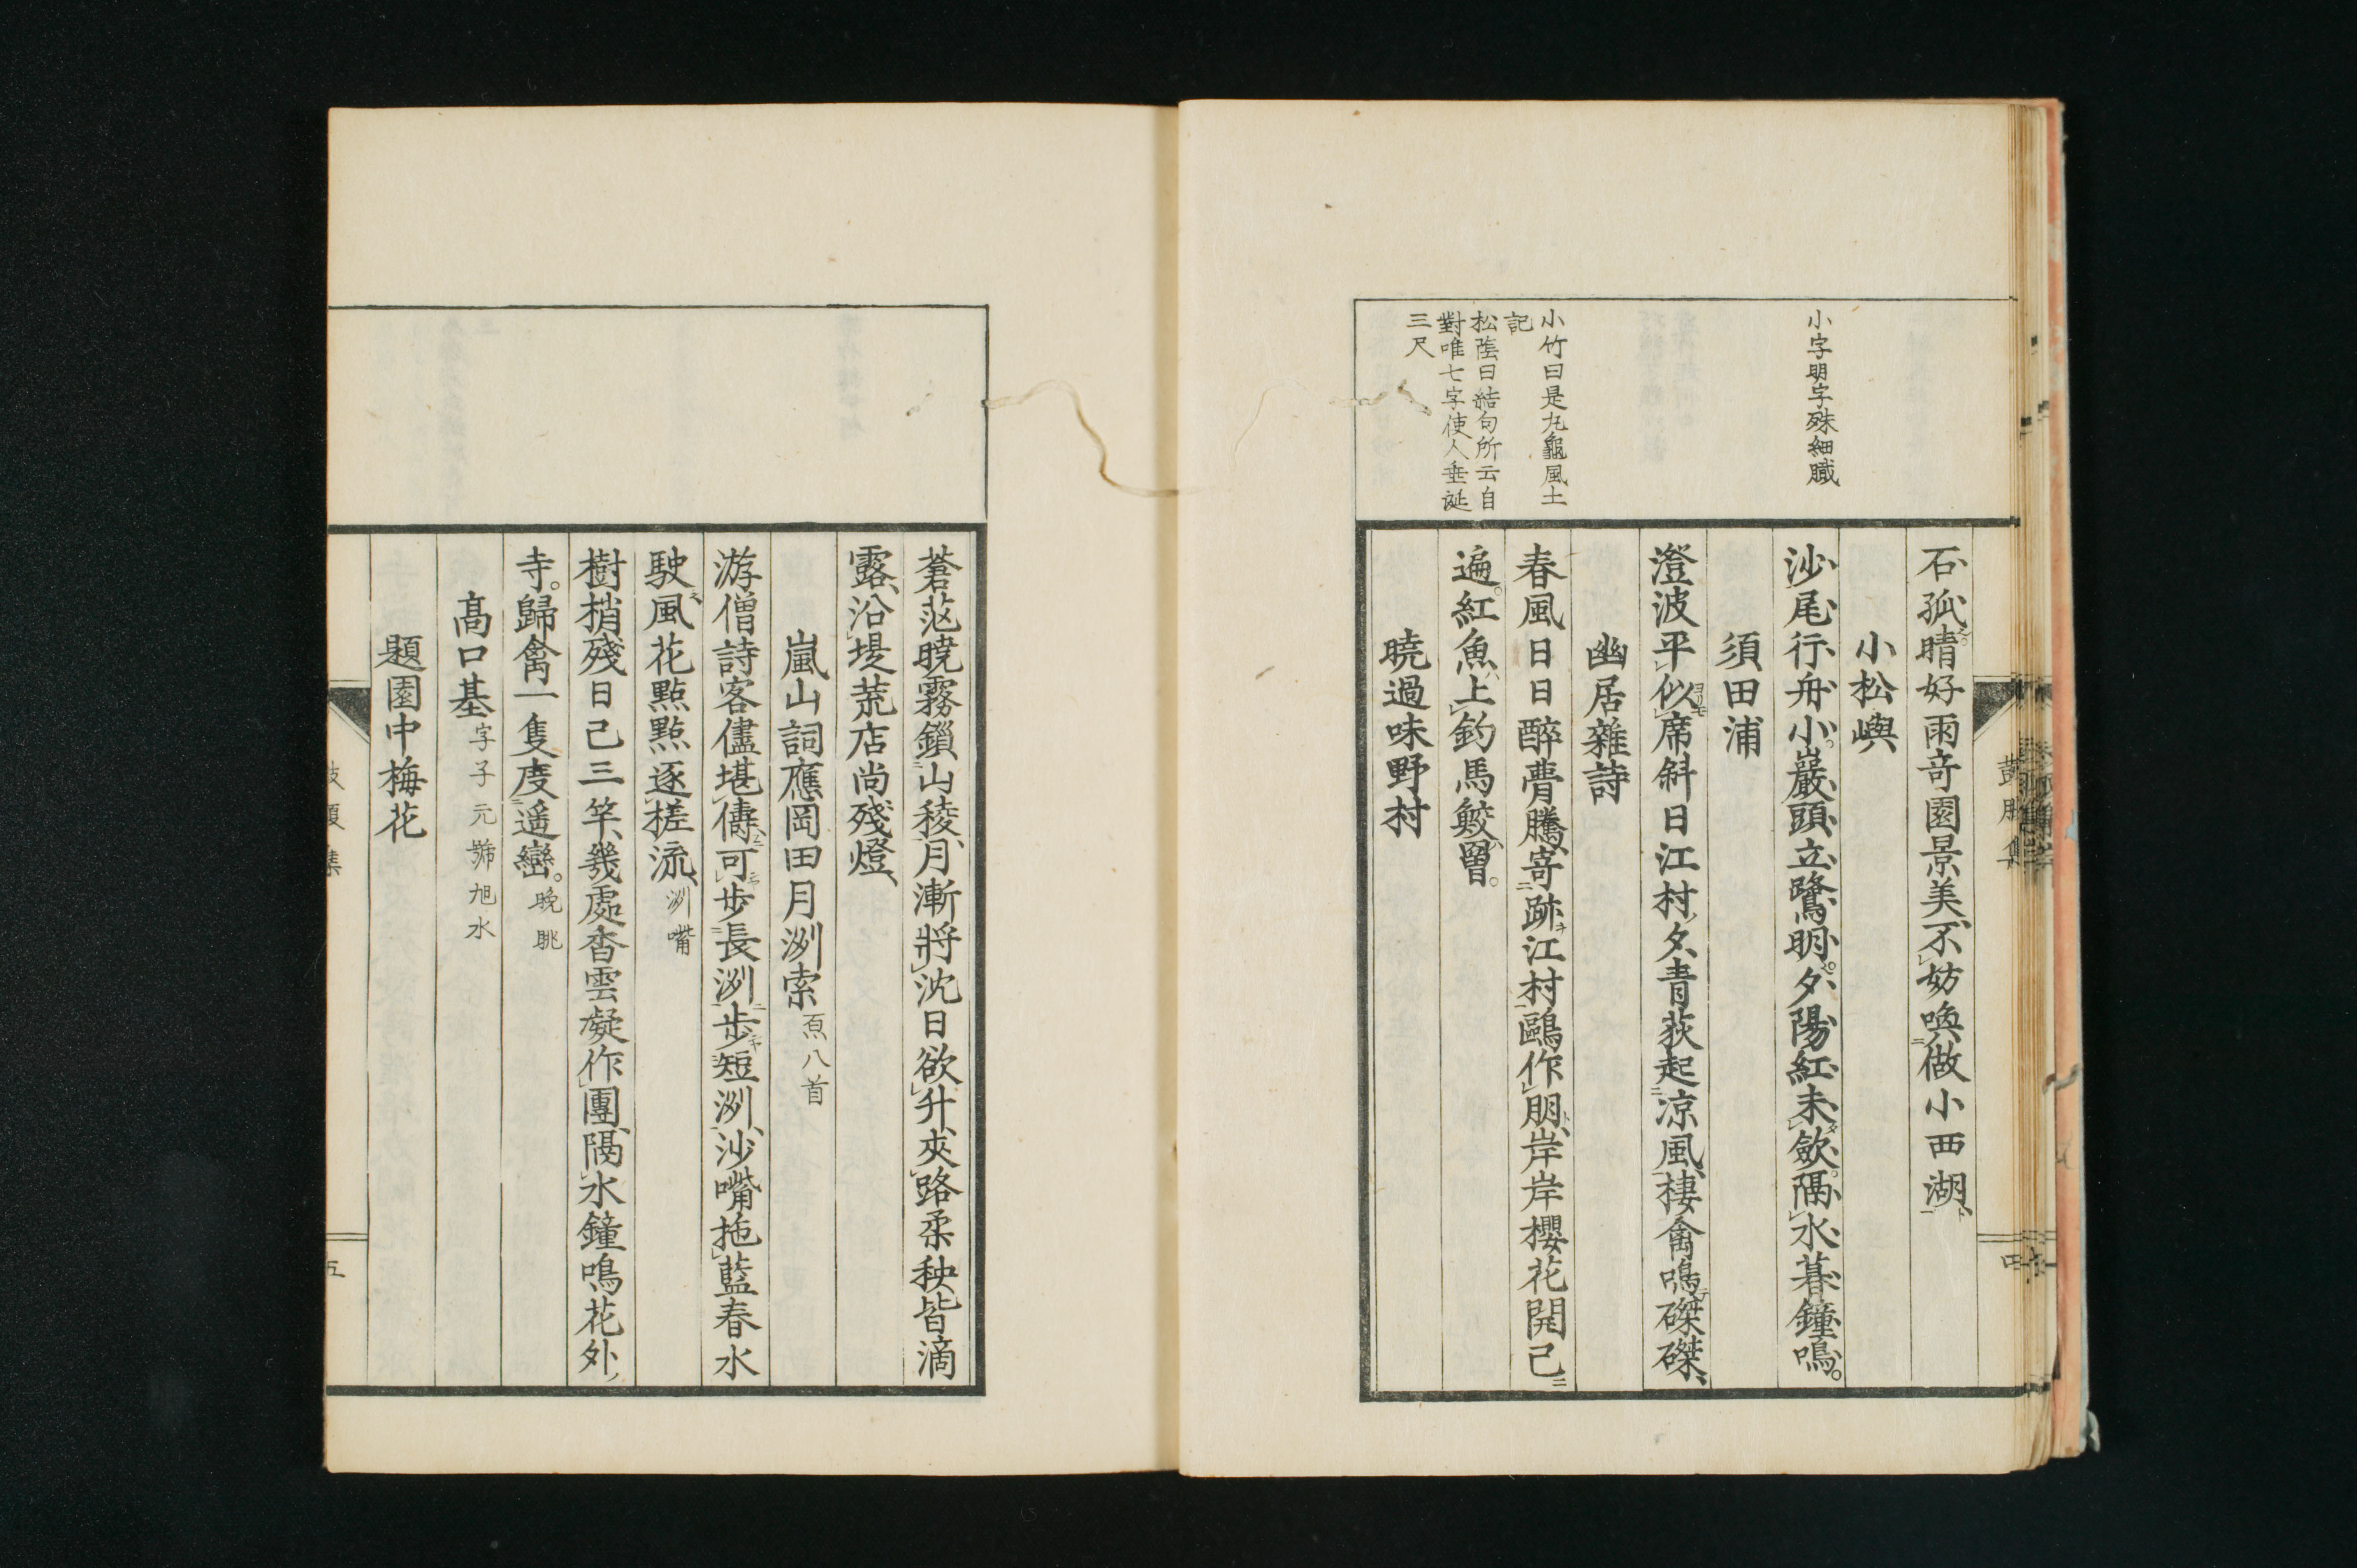 小字明字殊細膩
小竹曰是丸龜風土
記
松蔭曰結句所云自
對唯七字使人垂涎
三尺
石孤晴好雨竒園景美不妨喚做小西湖
小松嶼
沙尾行舟小巖頭立鷺明夕陽紅未歛隔水暮鐘鳴
須田浦
澄波平似席斜日江村夕青荻起涼風棲禽鳴磔磔
幽居雜詩
春風日日醉瞢騰寄跡江村鷗作朋岸岸櫻花開已
遍紅魚上釣馬鮫罾
曉過味野村
四
蒼茫曉霧鎖山稜月漸將沈日欲升夾路柔秧皆滴
露沿堤荒店尚殘燈
嵐山詞應岡田月洲索 原八首
游僧詩客儘堪儔可步長洲步短洲沙嘴拖藍春水
駛風花點點逐槎流 洲嘴
樹梢殘日已三竿幾處杳雲凝作團隔水鐘鳴花外
寺歸禽一隻度遙巒 晚眺
髙口基 字子元號旭水
題園中梅花
五